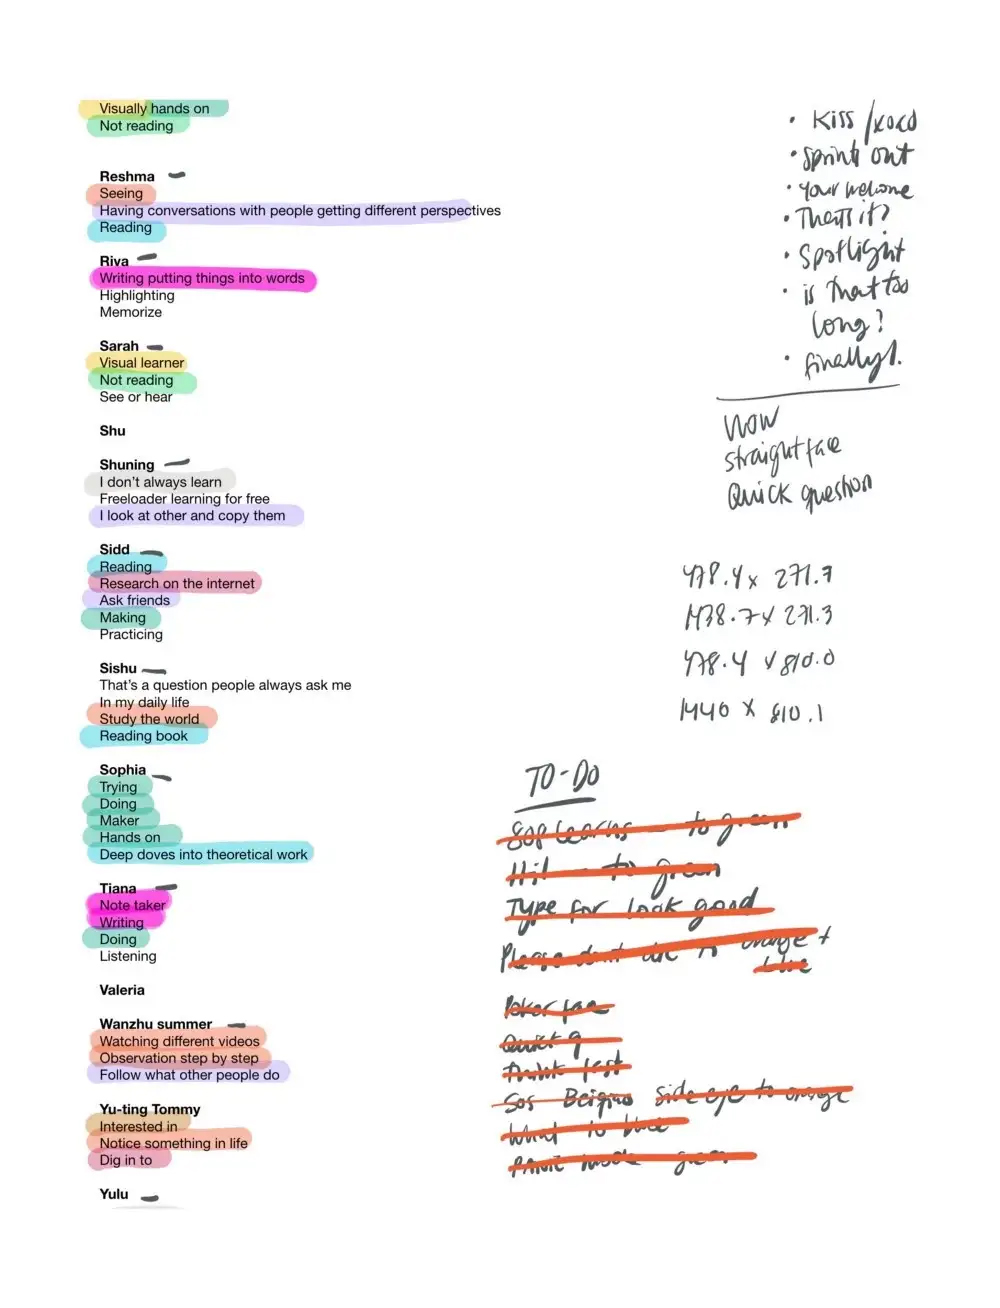 Visually hands on
Not reading
Reshma
Seeing
Having conversations with people getting different perspectives
Reading
Riva
Writing putting things into words
Highlighting
Memorize
Sarah
Visual learner
Not reading
See or hear
Shu
Shuning
I don’t always learn
Freeloader learning for free
I look at other and copy them
Sidd
Reading
Research on the internet
Ask friends
Making
Practicing
Sishu
That’s a question people always ask me
In my daily life
Study the world
Reading book
Sophia
Trying
Doing
Maker
Hands on
Deep doves into theoretical work
Tiana
Note taker
Writing
Doing
Listening
Valeria
Wanzhu summer
Watching different videos
Observation step by step
Follow what other people do
Yu-ting Tommy
Interested in
Notice something in life
Dig in to
Yulu
• Kiss /xoxo
• Sprint out
• Your welcome
• That's it?
• Spotlight
• is that too
long?
• finally!.
WOW
straight face
Quick question
478.4 x 271.7
1438.7 x 271.3
478.4 x 810.0
1440 x 810.1
TO-DO
to green
to green
Type for look good
Please don't to orange +
blue
Poker face
Quick q
Think fast
Sos side eye to orange
What to blue
Panic mode green